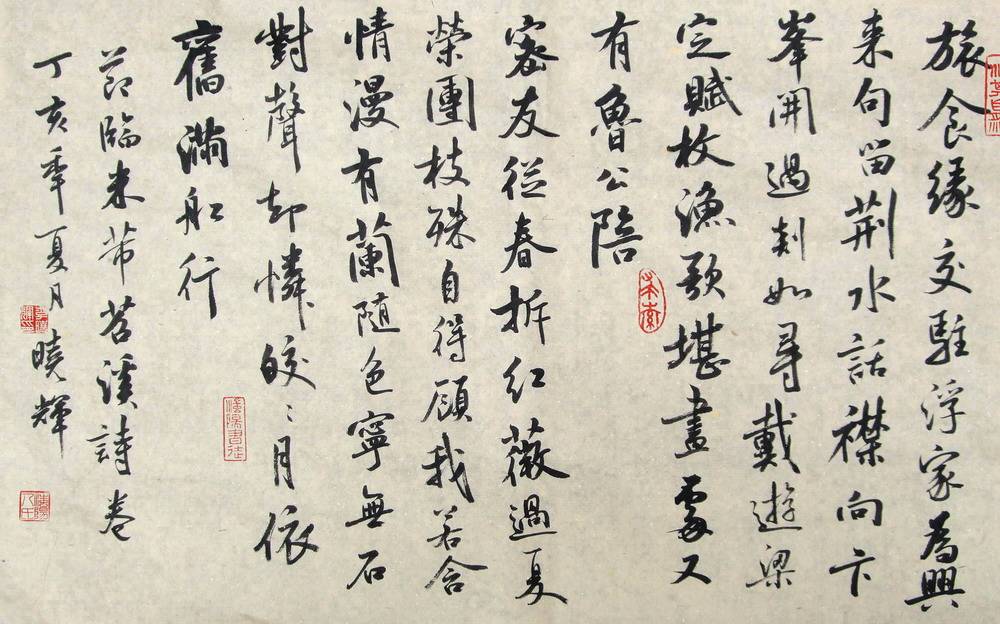 旅食緣交駐浮家為興
来句留荆水話襟向卞
峯開過剡如尋戴遊梁
定賦枚漁歌堪畫處又
有魯公陪
密友從春拆红薇過夏
榮團枝殊自得顧我若含
情漫有蘭随色寧無石
對聲却憐皎〻月依
舊滿船行
節臨米芾苕溪詩卷
丁亥年夏月曉輝